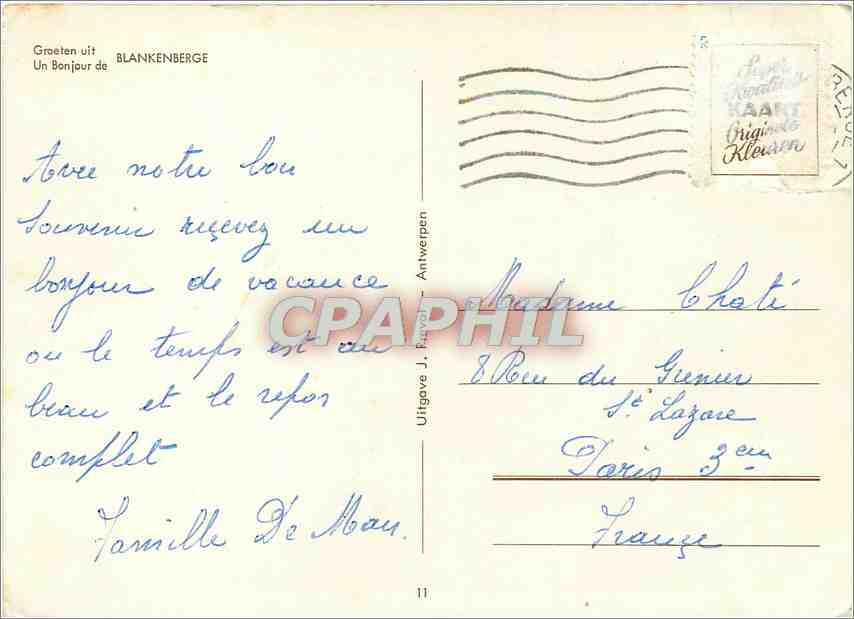 Groeten uit
Un Bonjour de BLANKENBERGE
Avec notre bon
souvenir reçevez un
bonjour de vacance
ou le temps est au
beau et le repos
complet
Famille De Man.
Uitgave J. Prevot - Antwerpen
11
Super
Kwaliteits
KAART
Originele
Kleuren
Madame Chaté
8 Rue du Grenier
St Lazare
Paris 3em
France
CPAPHIL